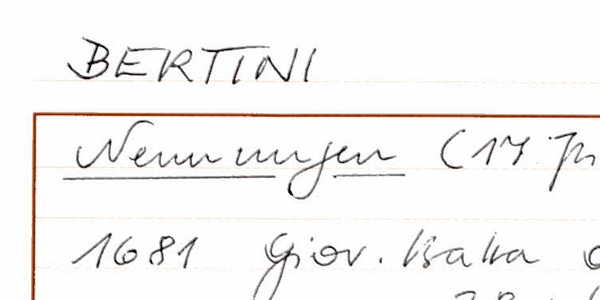 BERTINI
Nennungen (17. Jh
1681 Giov. Batta